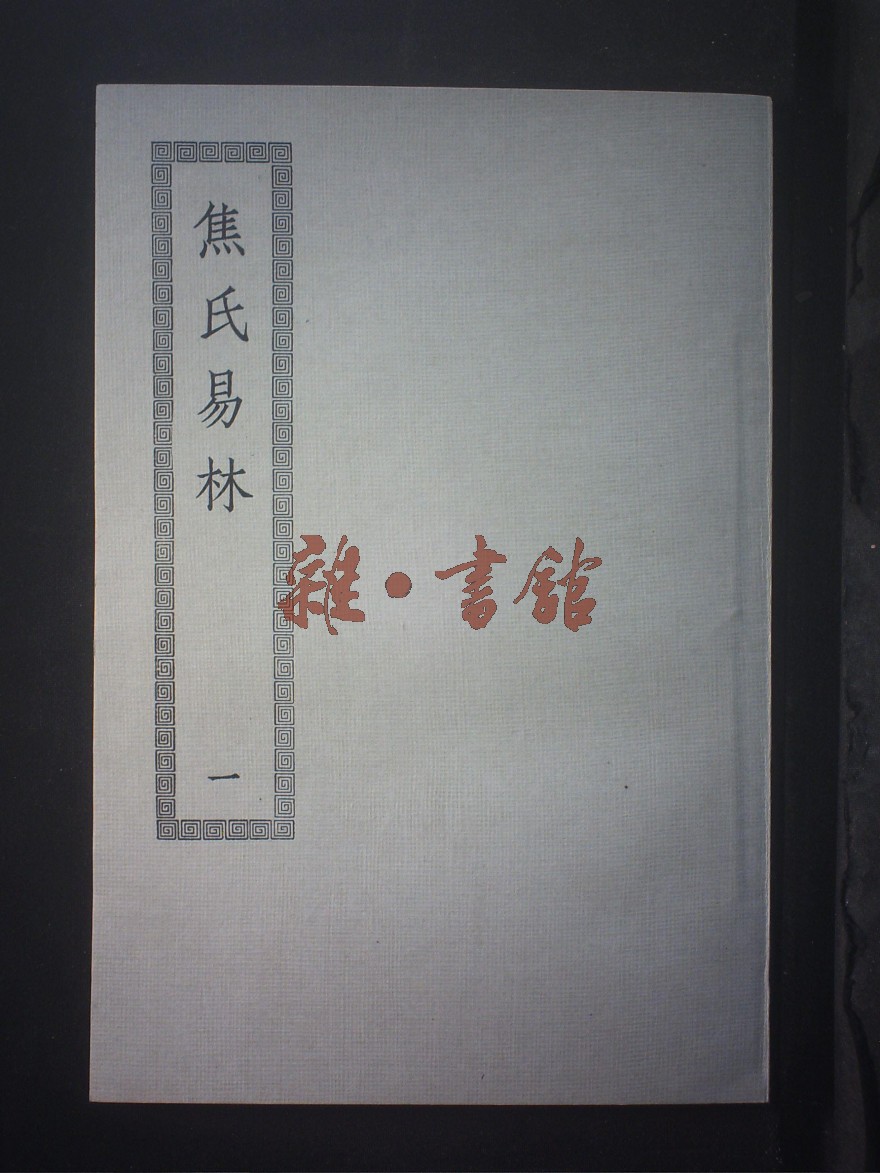 焦氏易林
一
雜·書館